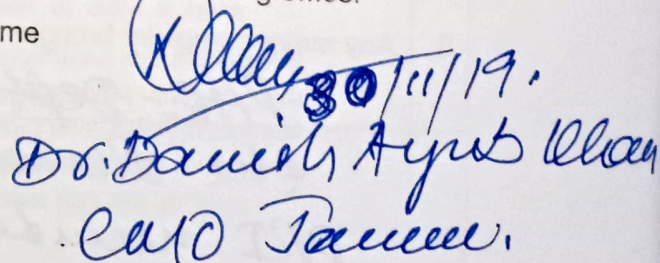 me
30/11/19.
Dr. Danish Ayub Khan
CMO